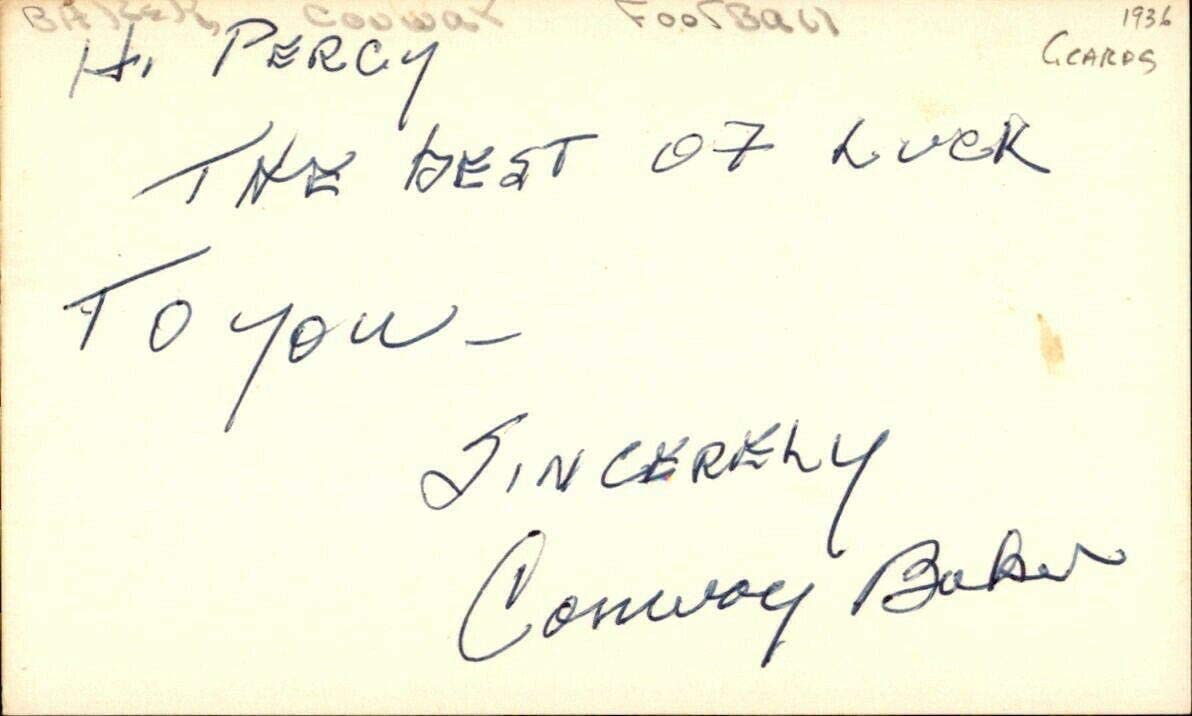 BAKER, CONWAY FOOTBALL 1936
C.CARDS
Hi PERCY
THE BEST OF LUCK
TO YOU -
SINCERELY
Conway Baker